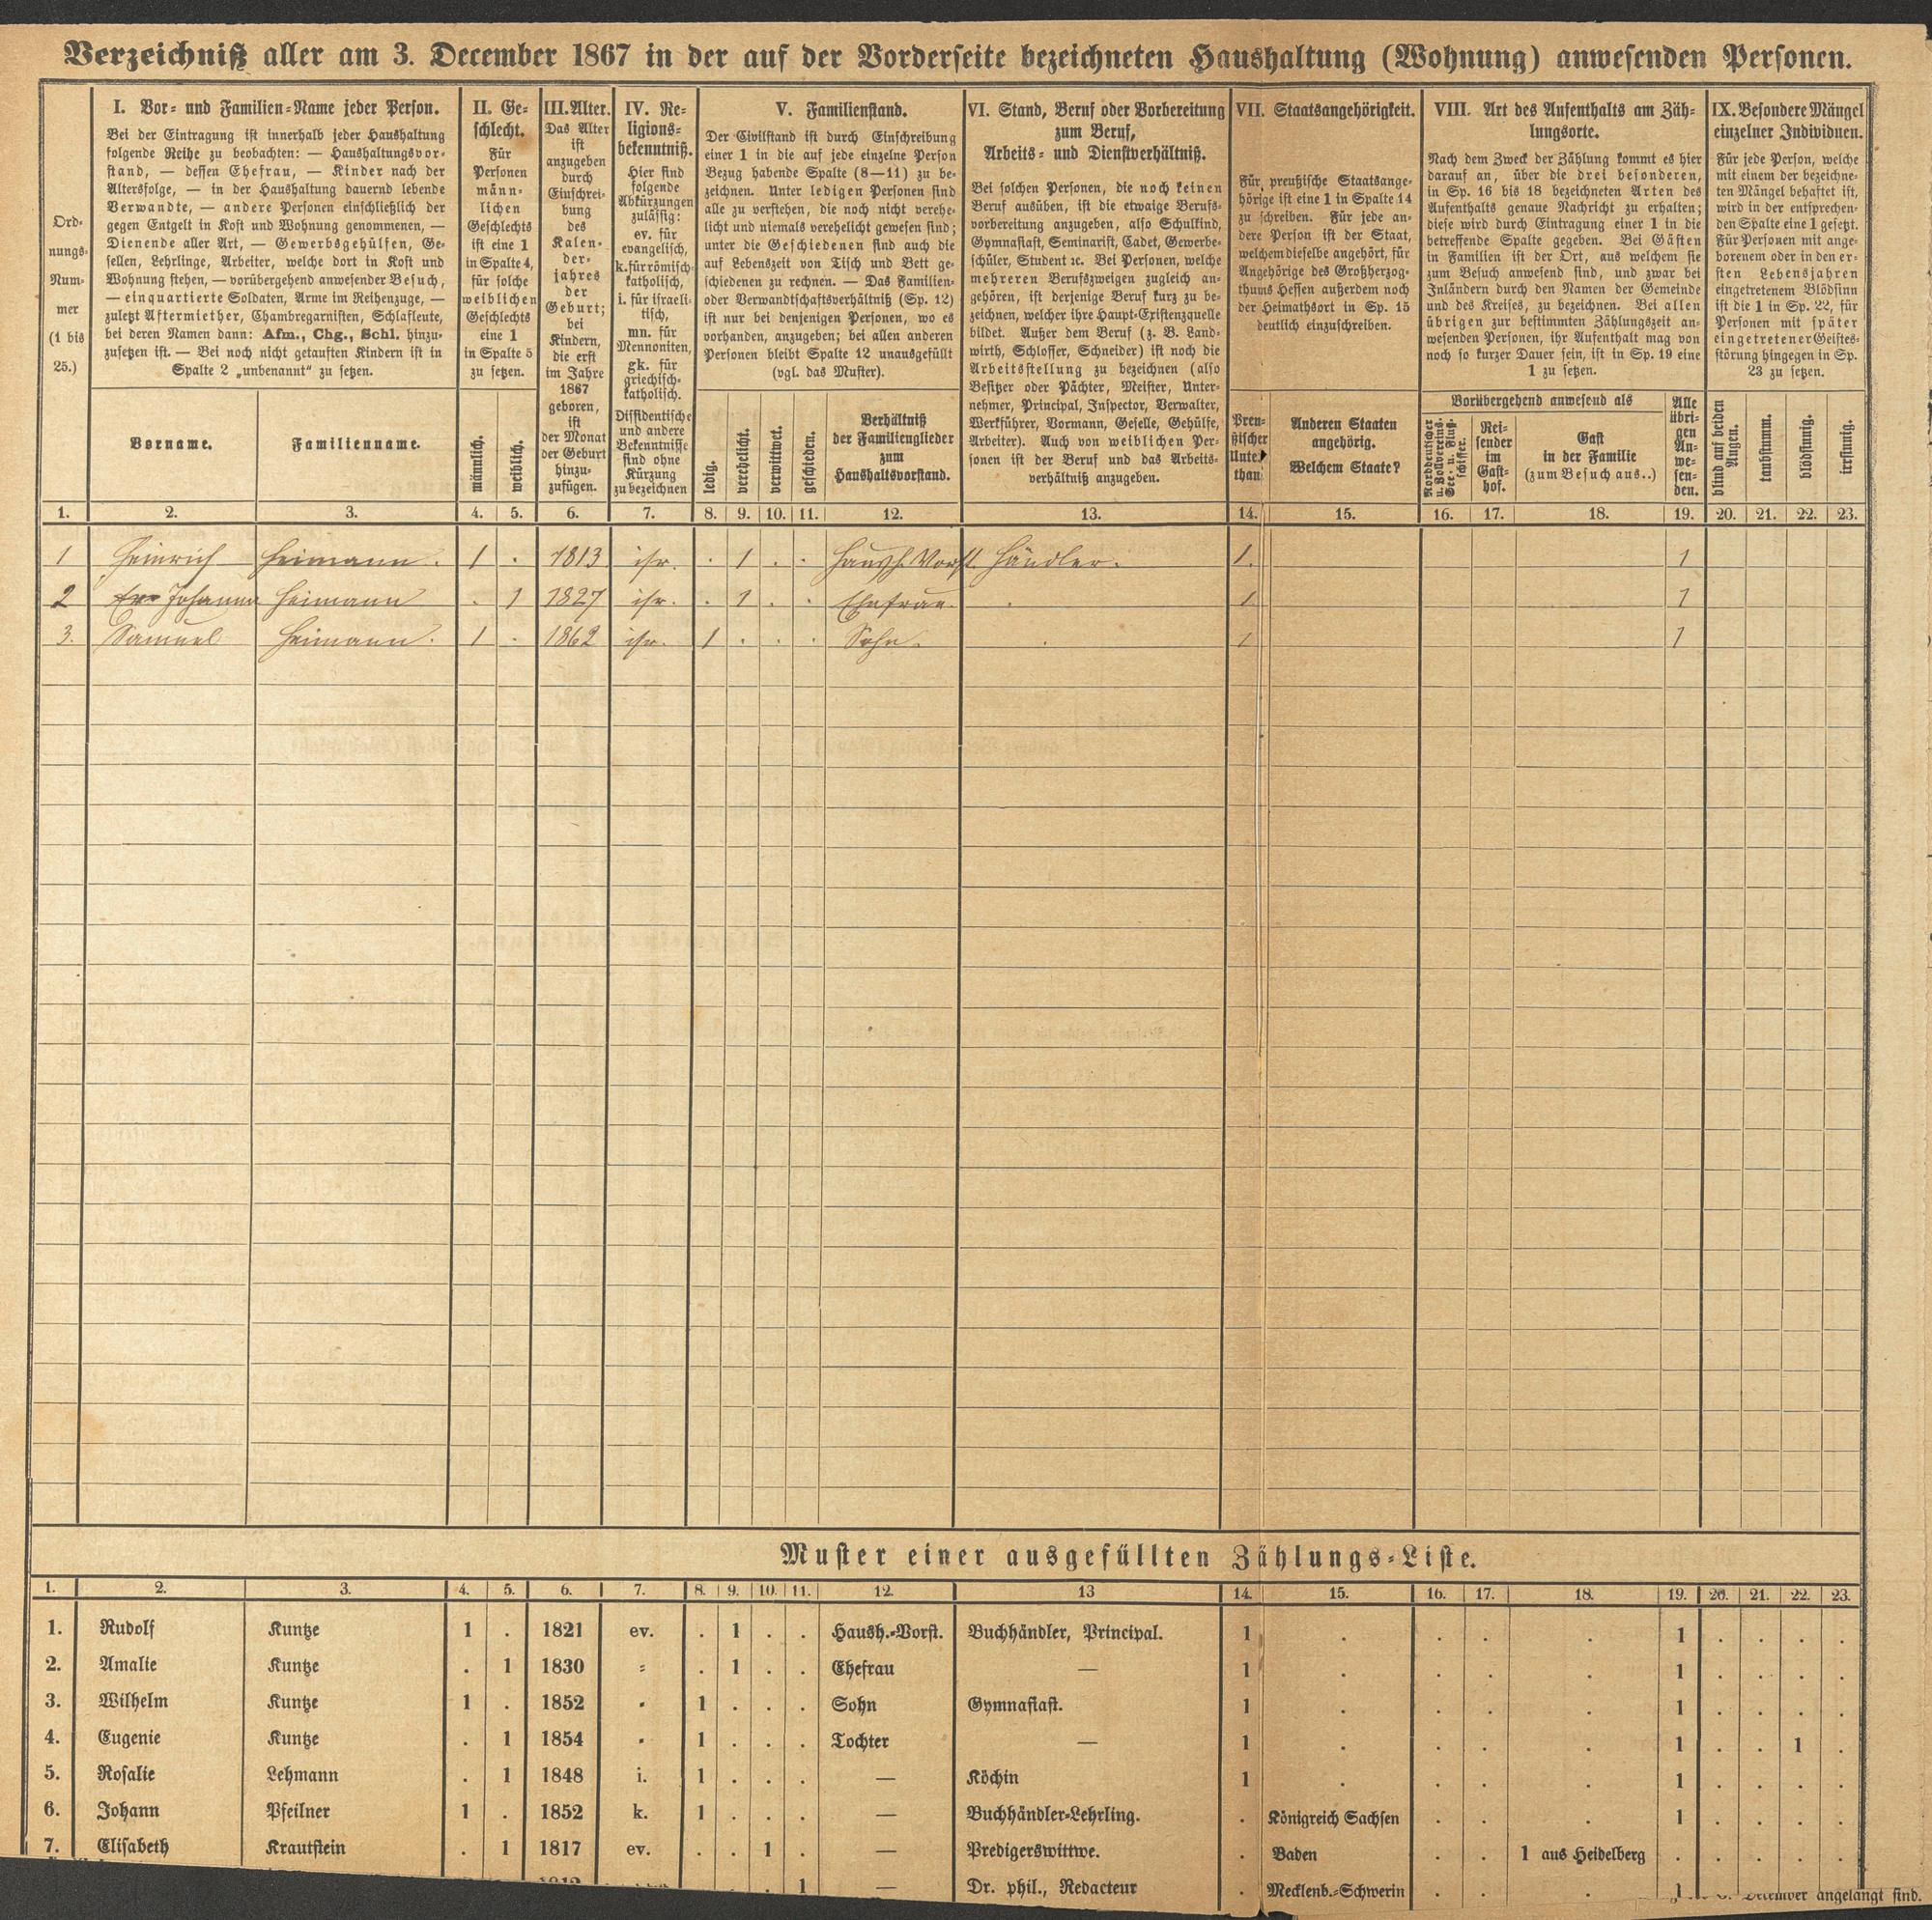 Verzeichniß aller am 3. December 1867 in der auf der Vorderseite bezeichneten Haushaltung (Wohnung) anwesenden Personen.
Ord-
nungs-
Num-
mer
(1 bis
25.)
I. Vor- und Familien-Name jeder Person.
Bei der Eintragung ist innerhalb jeder Haushaltung
folgende Reihe zu beobachten: — Haushaltungsvor-
stand, — dessen Ehefrau, — Kinder nach der
Altersfolge, — in der Haushaltung dauernd lebende
Verwandte, — andere Personen einschließlich der
gegen Entgelt in Kost und Wohnung genommenen, —
Dienende aller Art, — Gewerbsgehülfen, Ge-
sellen, Lehrlinge, Arbeiter, welche dort in Kost und
Wohnung stehen, — vorübergehend anwesender Besuch,
— einquartierte Soldaten, Arme im Reihenzuge, —
zuletzt Aftermiether, Chambregarnisten, Schlafleute,
bei deren Namen dann: Afm., Chg., Schl. hinzu-
zusetzen ist. — Bei noch nicht getauften Kindern ist in
Spalte 2 „unbenannt“ zu setzen.
Vorname.
Familienname.
II. Ge-
schlecht.
Für
Personen
männ-
lichen
Geschlechts
ist eine 1
in Spalte 4,
für solche
weiblichen
Geschlechts
eine 1
in Spalte 5
zu setzen.
männlich.
weiblich.
III. Alter.
Das Alter
ist
anzugeben
durch
Einschrei-
bung
des
Kalen-
der-
jahres
der
Geburt;
bei
Kindern,
die erst
im Jahre
1867
geboren,
ist
der Monat
der Geburt
hinzu-
zufügen.
IV. Re-
ligions-
bekenntniß.
Hier sind
folgende
Abkürzungen
zulässig:
ev. für
evangelisch,
k. für römisch-
katholisch,
i. für israeli-
tisch,
mn. für
Mennoniten,
gk. für
griechisch-
katholisch.
Dissidentische
und andere
Bekenntnisse
sind ohne
Kürzung
zu bezeichnen
V. Familienstand.
Der Civilstand ist durch Einschreibung
einer 1 in die auf jede einzelne Person
Bezug habende Spalte (8—11) zu be-
zeichnen. Unter ledigen Personen sind
alle zu verstehen, die noch nicht verehe-
licht und niemals verehelicht gewesen sind;
unter die Geschiedenen sind auch die
auf Lebenszeit von Tisch und Bett ge-
schiedenen zu rechnen. — Das Familien-
oder Verwandtschaftsverhältniß (Sp. 12)
ist nur bei denjenigen Personen, wo es
vorhanden, anzugeben; bei allen anderen
Personen bleibt Spalte 12 unausgefüllt
(vgl. das Muster).
ledig.
verehelicht.
verwittwet.
geschieden.
Verhältniß
der Familienglieder
zum
Haushaltsvorstand.
VI. Stand, Beruf oder Vorbereitung
zum Beruf,
Arbeits- und Dienstverhältniß.
Bei solchen Personen, die noch keinen
Beruf ausüben, ist die etwaige Berufs-
vorbereitung anzugeben, also Schulkind,
Gymnasiast, Seminarist, Cadet, Gewerbe-
schüler, Student ꝛc. Bei Personen, welche
mehreren Berufszweigen zugleich an-
gehören, ist derjenige Beruf kurz zu be-
zeichnen, welcher ihre Haupt-Existenzquelle
bildet. Außer dem Beruf (z. B. Land-
wirth, Schlosser, Schneider) ist noch die
Arbeitsstellung zu bezeichnen (also
Besitzer oder Pächter, Meister, Unter-
nehmer, Principal, Inspector, Verwalter,
Werkführer, Vormann, Geselle, Gehülfe,
Arbeiter). Auch von weiblichen Per-
sonen ist der Beruf und das Arbeits-
verhältniß anzugeben.
VII. Staatsangehörigkeit.
Für preußische Staatsange-
hörige ist eine 1 in Spalte 14
zu schreiben. Für jede an-
dere Person ist der Staat,
welchem dieselbe angehört, für
Angehörige des Großherzog-
thums Hessen außerdem noch
der Heimathsort in Sp. 15
deutlich einzuschreiben.
Preu-
ßischer
Unter-
than
Anderen Staaten
angehörig.
Welchem Staate?
VIII. Art des Aufenthalts am Zäh-
lungsorte.
Nach dem Zweck der Zählung kommt es hier
darauf an, über die drei besonderen,
in Sp. 16 bis 18 bezeichneten Arten des
Aufenthalts genaue Nachricht zu erhalten;
diese wird durch Eintragung einer 1 in die
betreffende Spalte gegeben. Bei Gästen
in Familien ist der Ort, aus welchem sie
zum Besuch anwesend sind, und zwar bei
Inländern durch den Namen der Gemeinde
und des Kreises, zu bezeichnen. Bei allen
übrigen zur bestimmten Zählungszeit an-
wesenden Personen, ihr Aufenthalt mag von
noch so kurzer Dauer sein, ist in Sp. 19 eine
1 zu setzen.
Vorübergehend anwesend als
Norddeutscher
u. Zollvereins-
See- u. Fluß-
schiffer.
Rei-
sender
im
Gast-
hof.
Gast
in der Familie
(zum Besuch aus..)
Alle
übri-
gen
An-
we-
sen-
den.
IX. Besondere Mängel
einzelner Individuen.
Für jede Person, welche
mit einem der bezeichne-
ten Mängel behaftet ist,
wird in der entsprechen-
den Spalte eine 1 gesetzt.
Für Personen mit ange-
borenem oder in den er-
sten Lebensjahren
eingetretenem Blödsinn
ist die 1 in Sp. 22, für
Personen mit später
eingetretener Geistes-
störung hingegen in Sp.
23 zu setzen.
blind auf beiden
Augen.
taubstumm.
blödsinnig.
irrsinnig.
1. 2. 3. 4. 5. 6. 7. 8. 9. 10. 11. 12. 13. 14. 15. 16. 17. 18. 19. 20. 21. 22. 23.
1 Heinrich Heimann. 1 . 1813 isr. . 1 . . Haush. Vorst. Händler. 1. 1
2 Johanna Heimann . 1 1827 isr. . 1 . . Ehefrau. . 1 1
3. Samuel Heimann. 1 . 1862 isr. 1 . . . Sohn. . 1 1
Muster einer ausgefüllten Zählungs-Liste.
1. 2. 3. 4. 5. 6. 7. 8. 9. 10. 11. 12. 13 14. 15. 16. 17. 18. 19. 20. 21. 22. 23.
1. Rudolf Kuntze 1 . 1821 ev. . 1 . . Haush.-Vorst. Buchhändler, Principal. 1 . . . . 1 . . . .
2. Amalie Kuntze . 1 1830 = . 1 . . Ehefrau — 1 . . . . 1 . . . .
3. Wilhelm Kuntze 1 . 1852 = 1 . . . Sohn Gymnasiast. 1 . . . . 1 . . . .
4. Eugenie Kuntze . 1 1854 = 1 . . . Tochter — 1 . . . . 1 . . 1 .
5. Rosalie Lehmann . 1 1848 i. 1 . . . — Köchin 1 . . . . 1 . . . .
6. Johann Pfeilner 1 . 1852 k. 1 . . . — Buchhändler-Lehrling. . Königreich Sachsen . . . 1 . . . .
7. Elisabeth Krautstein . 1 1817 ev. . . 1 . — Predigerswittwe. . Baden . . 1 aus Heidelberg . . . . .
. 1 — Dr. phil., Redacteur . Mecklenb.-Schwerin . . . 1 . . . .
December angelangt sind.